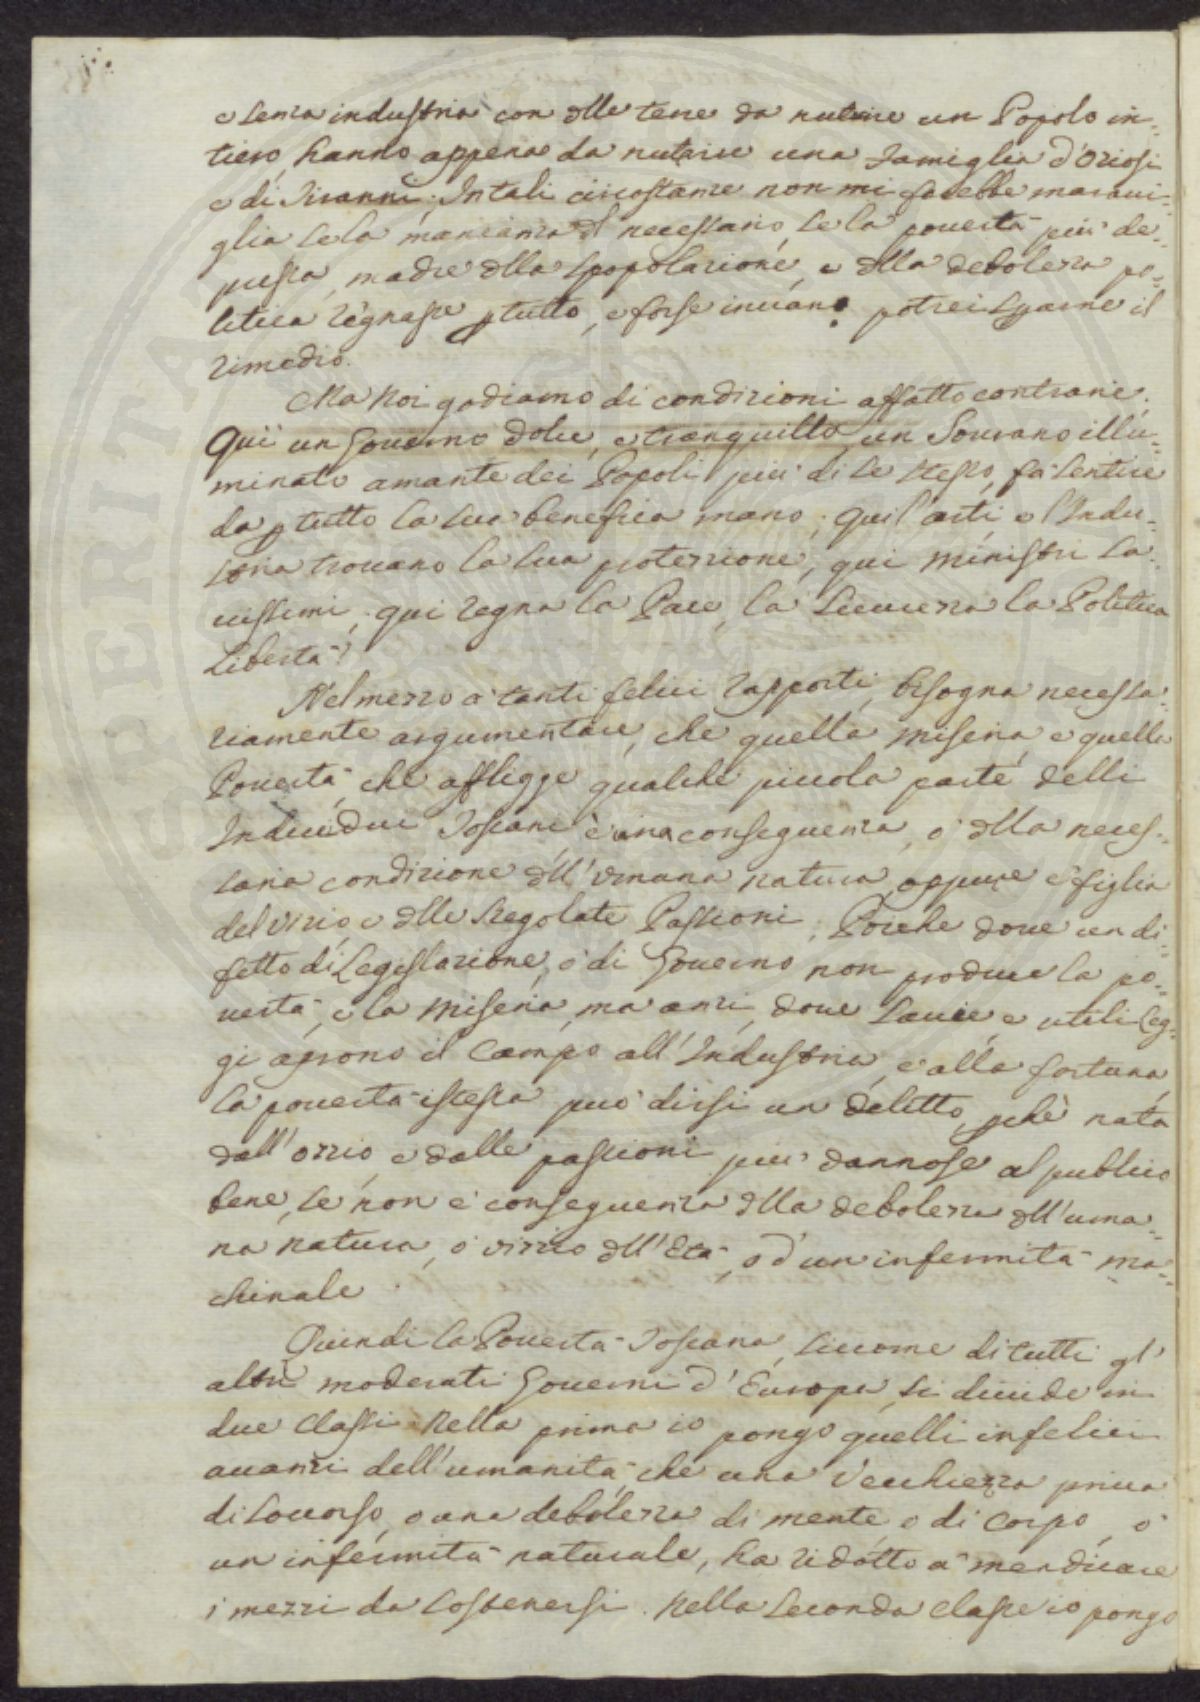 e senza industria con dlle terre da nutrire un Popolo in-
tiero, hanno appena da nutrire una Famiglia d'Oziosi
e di Tiranni; In tali circostanze non mi farebbe maravi-
glia se la mancanza dl necessario, se la povertà più de-
pressa, madre dlla spopolazione, e dlla debolezza po-
litica regnasse p tutto, e forse invano potrei sperarne il
rimedio.
Ma Noi godiamo di condizioni affatto contrarie.
Qui un Governo dolce, e tranquillo, un Sovrano illu-
minato amante dei Popoli più di se stesso, fa sentire
da p tutto la sua benefica mano; qui l'arti e l'Indu-
stria trovano la sua protezione, qui Ministri Sa-
vissimi, qui regna la Pace, la Sicurezza la Politica
Libertà!
Nel mezzo a' tanti felici rapporti, bisogna necessa-
riamente argumentare, che quella Miseria, e quella
Povertà, che affligge qualche piccola parte delli
Individui Toscani, è una conseguenza, o' dlla neces-
saria condizione dll'umana natura, oppure è figlia
del vizio e dlle sregolate Passioni; Poiche dove un di-
fetto di Legislazione, o' di Governo non produce la po-
vertà, e la Miseria, ma anzi, dove savie e utili Leg-
gi aprono il Campo all'Industria, e alla fortuna,
la povertà istessa può dirsi un delitto, pchè nata
dall'ozzio, e dalle passioni più dannose al publico
bene, se non è conseguenza dlla debolezza dll'uma-
na natura, o' vizzio dll'Età, o d'un infermità ma-
chinale.
Quindi la Povertà Toscana, siccome di tutti gl'
altri moderati Governi d'Europa, si divide in
due Classi. Nella prima io pongo quelli infelici
avanzi dell'umanità, che una Vecchiezza priva
di soccorso, o una debolezza di mente, o di Corpo, o'
un infermità naturale, ha ridotto a' mendicare
i mezzi da sostenersi. Nella seconda Classe io pongo